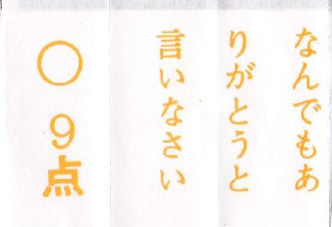 なんでもあ
りがとうと
言いなさい
○ 9点